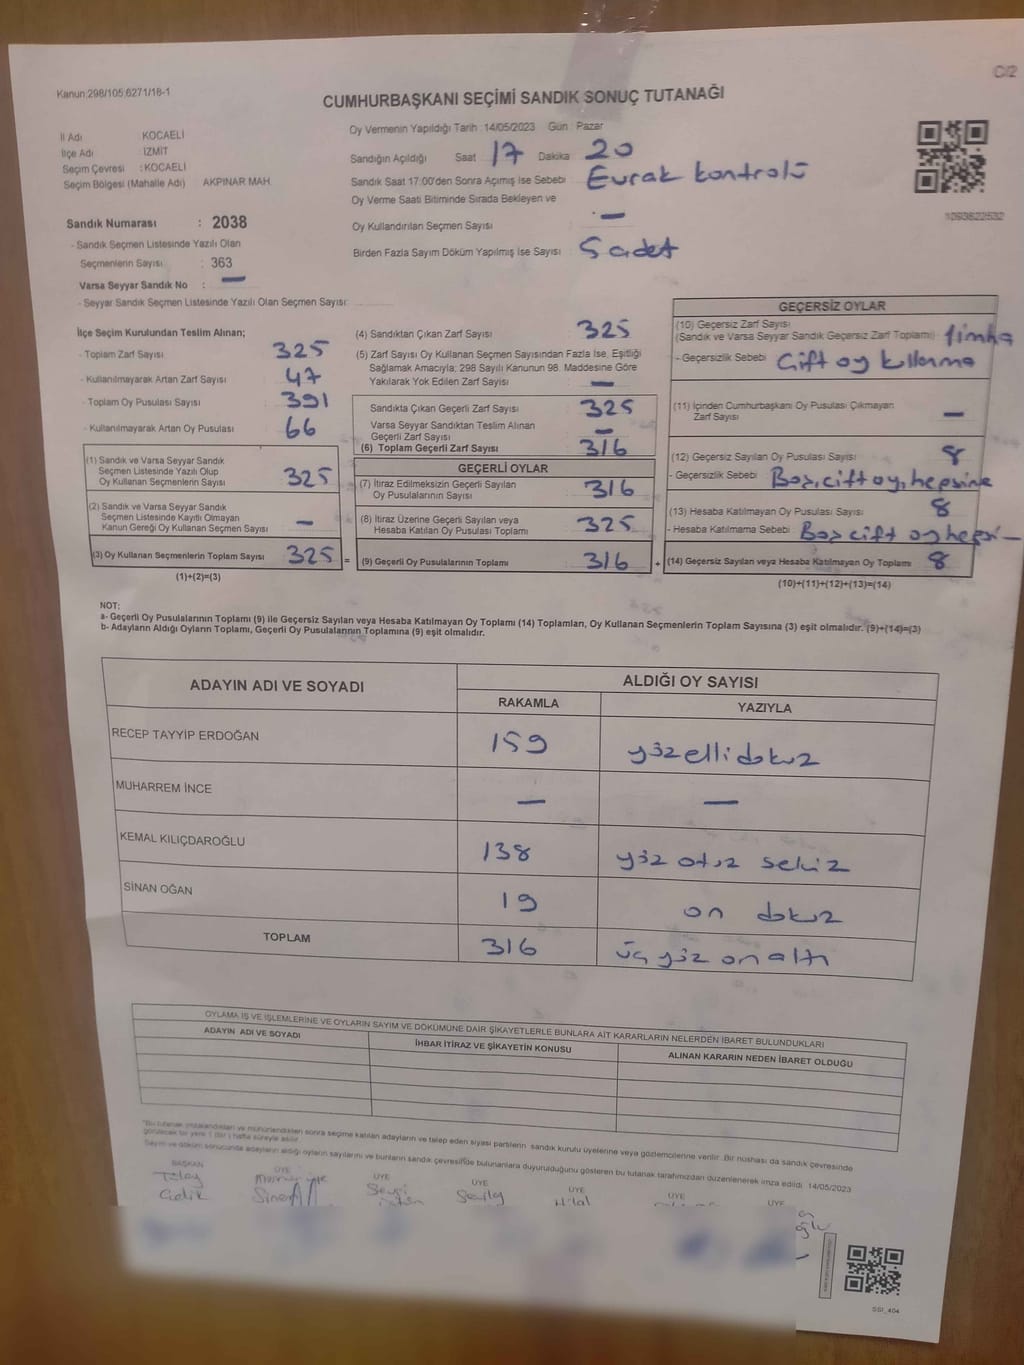 C/2
Kanun:298/105,6271/16-1
CUMHURBAŞKANI SEÇİMİ SANDIK SONUÇ TUTANAĞI
İl Adı KOCAELİ
İlçe Adı İZMİT
Seçim Çevresi : KOCAELİ
Seçim Bölgesi (Mahalle Adı) AKPINAR MAH.
Oy Vermenin Yapıldığı Tarih : 14/05/2023 Gün : Pazar
Sandığın Açıldığı Saat 17 Dakika 20
Sandık Saat 17:00'den Sonra Açımış İse Sebebi Evrak kontrolü
Oy Verme Saati Bitiminde Sırada Bekleyen ve
Oy Kullandırılan Seçmen Sayısı —
Birden Fazla Sayım Döküm Yapılmış İse Sayısı 5 adet
1093622532
Sandık Numarası : 2038
- Sandık Seçmen Listesinde Yazılı Olan
Seçmenlerin Sayısı : 363
Varsa Seyyar Sandık No : —
- Seyyar Sandık Seçmen Listesinde Yazılı Olan Seçmen Sayısı:
İlçe Seçim Kurulundan Teslim Alınan;
- Toplam Zarf Sayısı 325
- Kullanılmayarak Artan Zarf Sayısı : 47
- Toplam Oy Pusulası Sayısı : 391
- Kullanılmayarak Artan Oy Pusulası : 66
(1) Sandık ve Varsa Seyyar Sandık
Seçmen Listesinde Yazılı Olup
Oy Kullanan Seçmenlerin Sayısı : 325
(2) Sandık ve Varsa Seyyar Sandık
Seçmen Listesinde Kayıtlı Olmayan
Kanun Gereği Oy Kullanan Seçmen Sayısı : —
(3) Oy Kullanan Seçmenlerin Toplam Sayısı : 325 =
(1)+(2)=(3)
(4) Sandıktan Çıkan Zarf Sayısı : 325
(5) Zarf Sayısı Oy Kullanan Seçmen Sayısından Fazla İse, Eşitliği
Sağlamak Amacıyla; 298 Sayılı Kanunun 98. Maddesine Göre
Yakılarak Yok Edilen Zarf Sayısı : —
Sandıkta Çıkan Geçerli Zarf Sayısı : 325
Varsa Seyyar Sandıktan Teslim Alınan
Geçerli Zarf Sayısı : —
(6) Toplam Geçerli Zarf Sayısı : 316
GEÇERLİ OYLAR
(7) İtiraz Edilmeksizin Geçerli Sayılan
Oy Pusulalarının Sayısı : 316
(8) İtiraz Üzerine Geçerli Sayılan veya
Hesaba Katılan Oy Pusulası Toplamı : 325
(9) Geçerli Oy Pusulalarının Toplamı : 316 +
GEÇERSİZ OYLAR
(10) Geçersiz Zarf Sayısı
(Sandık ve Varsa Seyyar Sandık Geçersiz Zarf Toplamı) 1 imha
- Geçersizlik Sebebi Çift oy kullanma
(11) İçinden Cumhurbaşkanı Oy Pusulası Çıkmayan
Zarf Sayısı —
(12) Geçersiz Sayılan Oy Pusulası Sayısı : 8
- Geçersizlik Sebebi Boş, çift oy, hepsine
(13) Hesaba Katılmayan Oy Pusulası Sayısı : 8
- Hesaba Katılmama Sebebi : Boş çift oy hepsi—
(14) Geçersiz Sayılan veya Hesaba Katılmayan Oy Toplamı : 8
(10)+(11)+(12)+(13)=(14)
NOT:
a- Geçerli Oy Pusulalarının Toplamı (9) ile Geçersiz Sayılan veya Hesaba Katılmayan Oy Toplamı (14) Toplamları, Oy Kullanan Seçmenlerin Toplam Sayısına (3) eşit olmalıdır. (9)+(14)=(3)
b- Adayların Aldığı Oyların Toplamı, Geçerli Oy Pusulalarının Toplamına (9) eşit olmalıdır.
ADAYIN ADI VE SOYADI ALDIĞI OY SAYISI
RAKAMLA YAZIYLA
RECEP TAYYİP ERDOĞAN 159 yüzellidokuz
MUHARREM İNCE — —
KEMAL KILIÇDAROĞLU 138 yüz otuz sekiz
SİNAN OĞAN 19 on dokuz
TOPLAM 316 üç yüz on altı
OYLAMA İŞ VE İŞLEMLERİNE VE OYLARIN SAYIM VE DÖKÜMÜNE DAİR ŞİKAYETLERLE BUNLARA AİT KARARLARIN NELERDEN İBARET BULUNDUKLARI
ADAYIN ADI VE SOYADI İHBAR İTİRAZ VE ŞİKAYETİN KONUSU ALINAN KARARIN NEDEN İBARET OLDUĞU
"Bu tutanak imzalandıktan ve mühürlendikten sonra seçime katılan adayların ve talep eden siyasi partilerin sandık kurulu üyelerine veya gözlemcilerine verilir. Bir nüshası da sandık çevresinde
görülecek bir yere 1 (bir) hafta süreyle asılır.
Sayım ve döküm sonucunda adayların aldığı oyların sayılarını ve bunların sandık çevresinde bulunanlara duyurulduğunu gösteren bu tutanak tarafımızdan düzenlenerek imza edildi. 14/05/2023
BAŞKAN ÜYE ÜYE ÜYE ÜYE ÜYE
Tülay Sevgi Sevilay Hilal
SSI_404